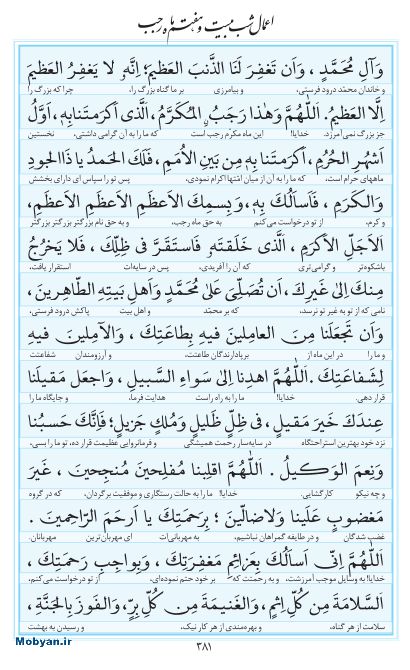 اعمال شب بیست و هفتم ماه رجب
وَآلِ مُحَمَّدٍ ، وَاَن تَغفِرَ لَنَا الذَّنبَ العَظيمَ؛ اِنَّهُ لا يَغفِرُ العَظيمَ
و خاندان محمّد درود فرستی، و بیامرزی بر ما گناه بزرگ را، چرا که بزرگ را
اِلَّا العَظيمُ. اَللّهُمَّ وَهذا رَجَبٌ المُكَرَّمُ ، اَلَّذى اَكرَمتَنا بِهِ ، اَوَّلُ
جز بزرگ نمی‌آمرزد. خدایا! این ماه مکرّم رجب است که ما را به آن گرامی داشتی، نخستین
اَشهُرِ الحُرُمِ ، اَكرَمتَنا بِهِ مِن بَينِ الاُمَمِ ، فَلَكَ الحَمدُ يا ذَا الجودِ
ماههای حرام است، که ما را به آن از میان امّتها اکرام نمودی، پس تو را سپاس ای دارای بخشش
وَالكَرَمِ ، فَاَسأَلُكَ بِهِ ، وَبِسمِكَ الاَعظَمِ الاَعظَمِ الاَعظَمِ ،
و کرم، از تو درخواست می‌کنم به حق ماه رجب، و به حق نام بزرگتر بزرگتر بزرگتر
اَلاَجَلِّ الاَكرَمِ ، اَلَّذى خَلَقتَهُ فَاستَقَرَّ فى ظِلِّكَ ، فَلا يَخرُجُ
باشکوه‌تر و گرامی‌تری که آن را آفریدی، پس در سایه‌ات استقرار یافت،
مِنكَ اِلى غَيرِكَ ، اَن تُصَلِّىَ عَلى مُحَمَّدٍ وَاَهلِ بَيتِهِ الطّاهِرينَ ،
نامی که از تو به غیر تو نرسد، که بر محمّد و اهل بیت پاکش درود فرستی،
وَاَن تَجعَلَنا مِنَ العامِلينَ فيهِ بِطاعَتِكَ ، وَالآمِلينَ فيهِ
و ما را در این ماه از برپادارندگان طاعتت، و آرزومندان شفاعتت
لِشَفاعَتِكَ . اَللّهُمَّ اهدِنا اِلى سَواءِ السَّبيلِ ، وَاجعَل مَقيلَنا
قرار دهی. خدایا! ما را به راه راست هدایت فرما، و جایگاه ما را
عِندَكَ خَيرَ مَقيلٍ ، فى ظِلٍّ ظَليلٍ وَمُلكٍ جَزيلٍ؛ فَاِنَّكَ حَسبُنا
نزد خود بهترین استراحتگاه در سایه‌سار رحمت همیشگی و فرمانروایی عظیمت قرار ده، تو ما را بسی،
وَنِعمَ الوَكيلُ . اَللّهُمَّ اقلِبنا مُفلِحينَ مُنجِحينَ ، غَيرَ
و چه نیکو کارگشایی. خدایا! ما را به حالت رستگاری و موفقیت برگردان، که در گروه
مَغضوبٍ عَلَينا وَلا ضالّينَ؛ بِرَحمَتِكَ يا اَرحَمَ الرّاحِمينَ .
غضب شدگان و در طایفه گمراهان نباشیم، به مهربانی‌ات ای مهربان‌ترین مهربانان.
اَللّهُمَّ اِنّى اَسأَلُكَ بِعَزائِمِ مَغفِرَتِكَ ، وَبِواجِبِ رَحمَتِكَ ،
خدایا! به وسایل موجب آمرزشت، و به رحمتت که بر خود حتم نموده‌ای، از تو درخواست می‌کنم،
اَلسَّلامَةَ مِن كُلِّ اِثمٍ ، وَالغَنيمَةَ مِن كُلِّ بِرٍّ ، وَالفَوزَ بِالجَنَّةِ ،
سلامت از هر گناه، و بهره‌مندی از هر کار نیک، و رسیدن به بهشت
۳۸۱
Mobyan.ir